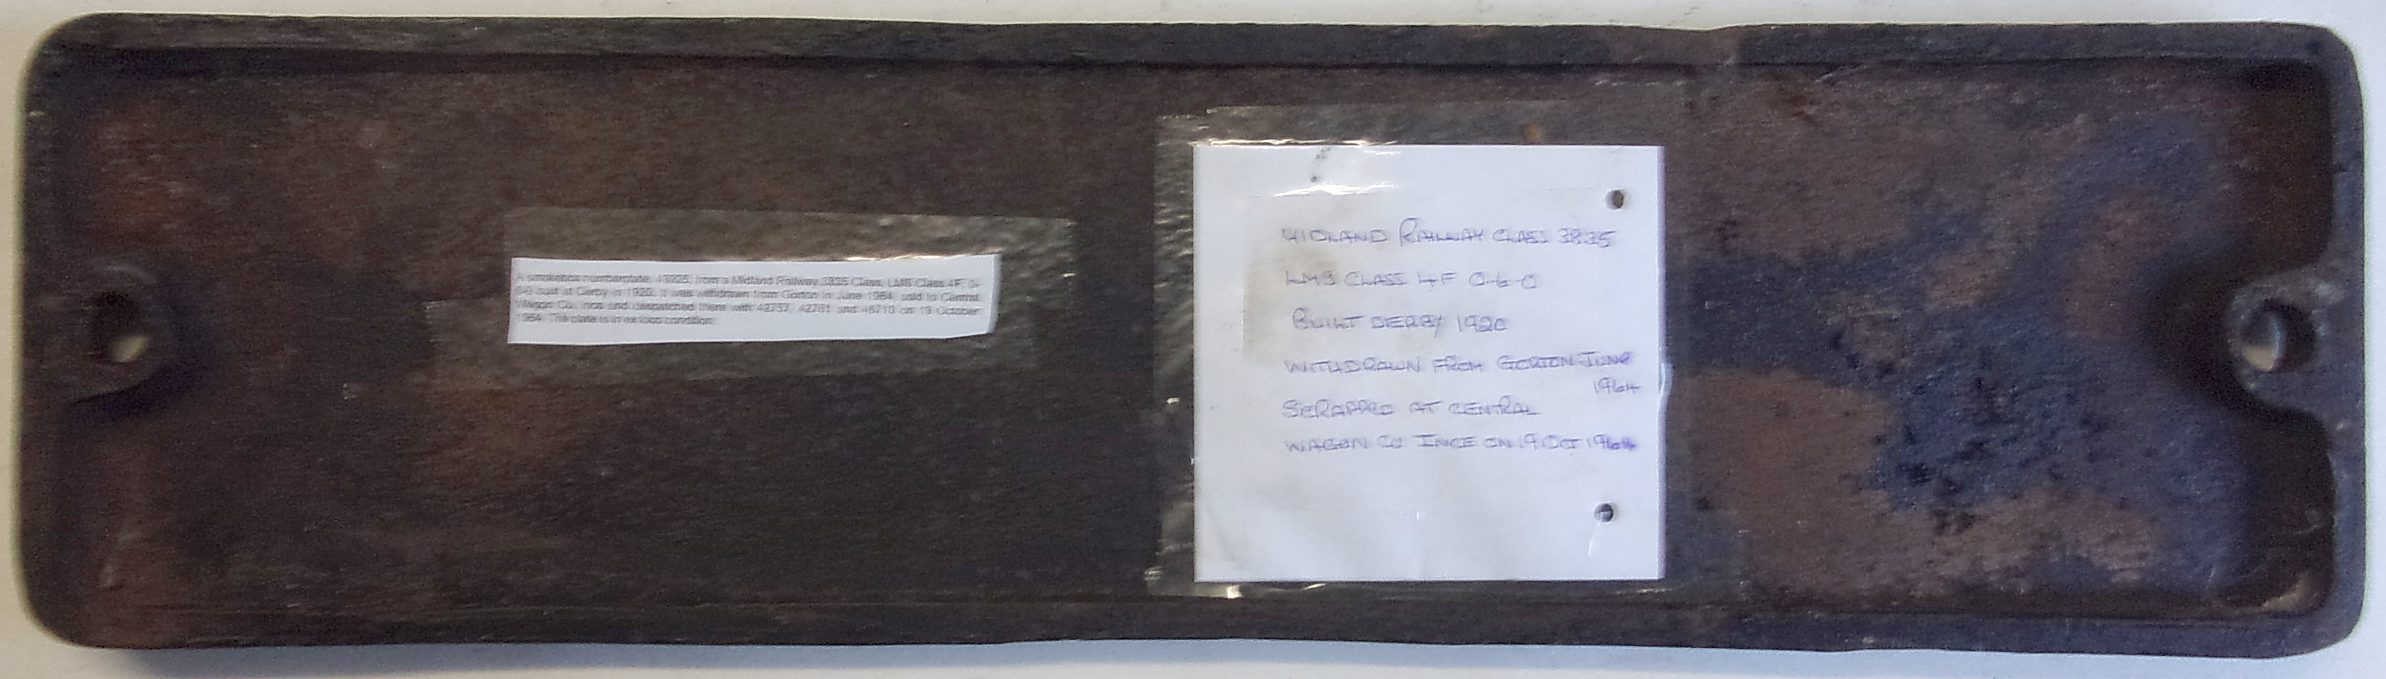 A smokebox numberplate, 43925, from a Midland Railway 3835 Class, LMS Class 4F 0-
6-0 built at Derby in 1920. It was withdrawn from Gorton in June 1964, sold to Central
Wagon Co, Ince and despatched there with 42757, 42761 and 48710 on 19 October
1964. The plate is in ex loco condition.
MIDLAND RAILWAY CLASS 3835
LMS CLASS 4F 0-6-0
BUILT DERBY 1920
WITHDRAWN FROM GORTON JUNE
1964
SCRAPPED AT CENTRAL
WAGON CO INCE ON 19 OCT 1964